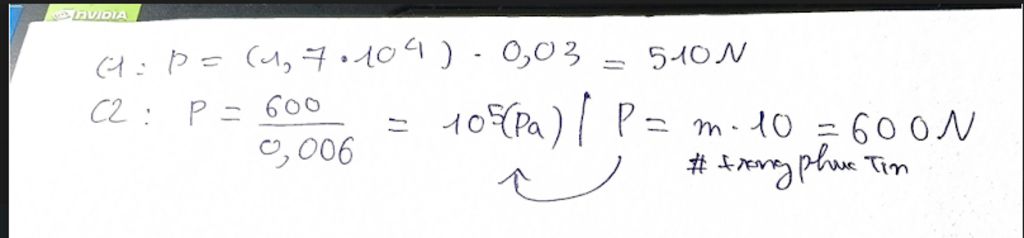 NVIDIA
C1: P = (1,7.10⁴) . 0,03 = 510N
C2: P = 600/0,006 = 10⁵(Pa) / P = m.10 = 600N
# trongphuc Tin